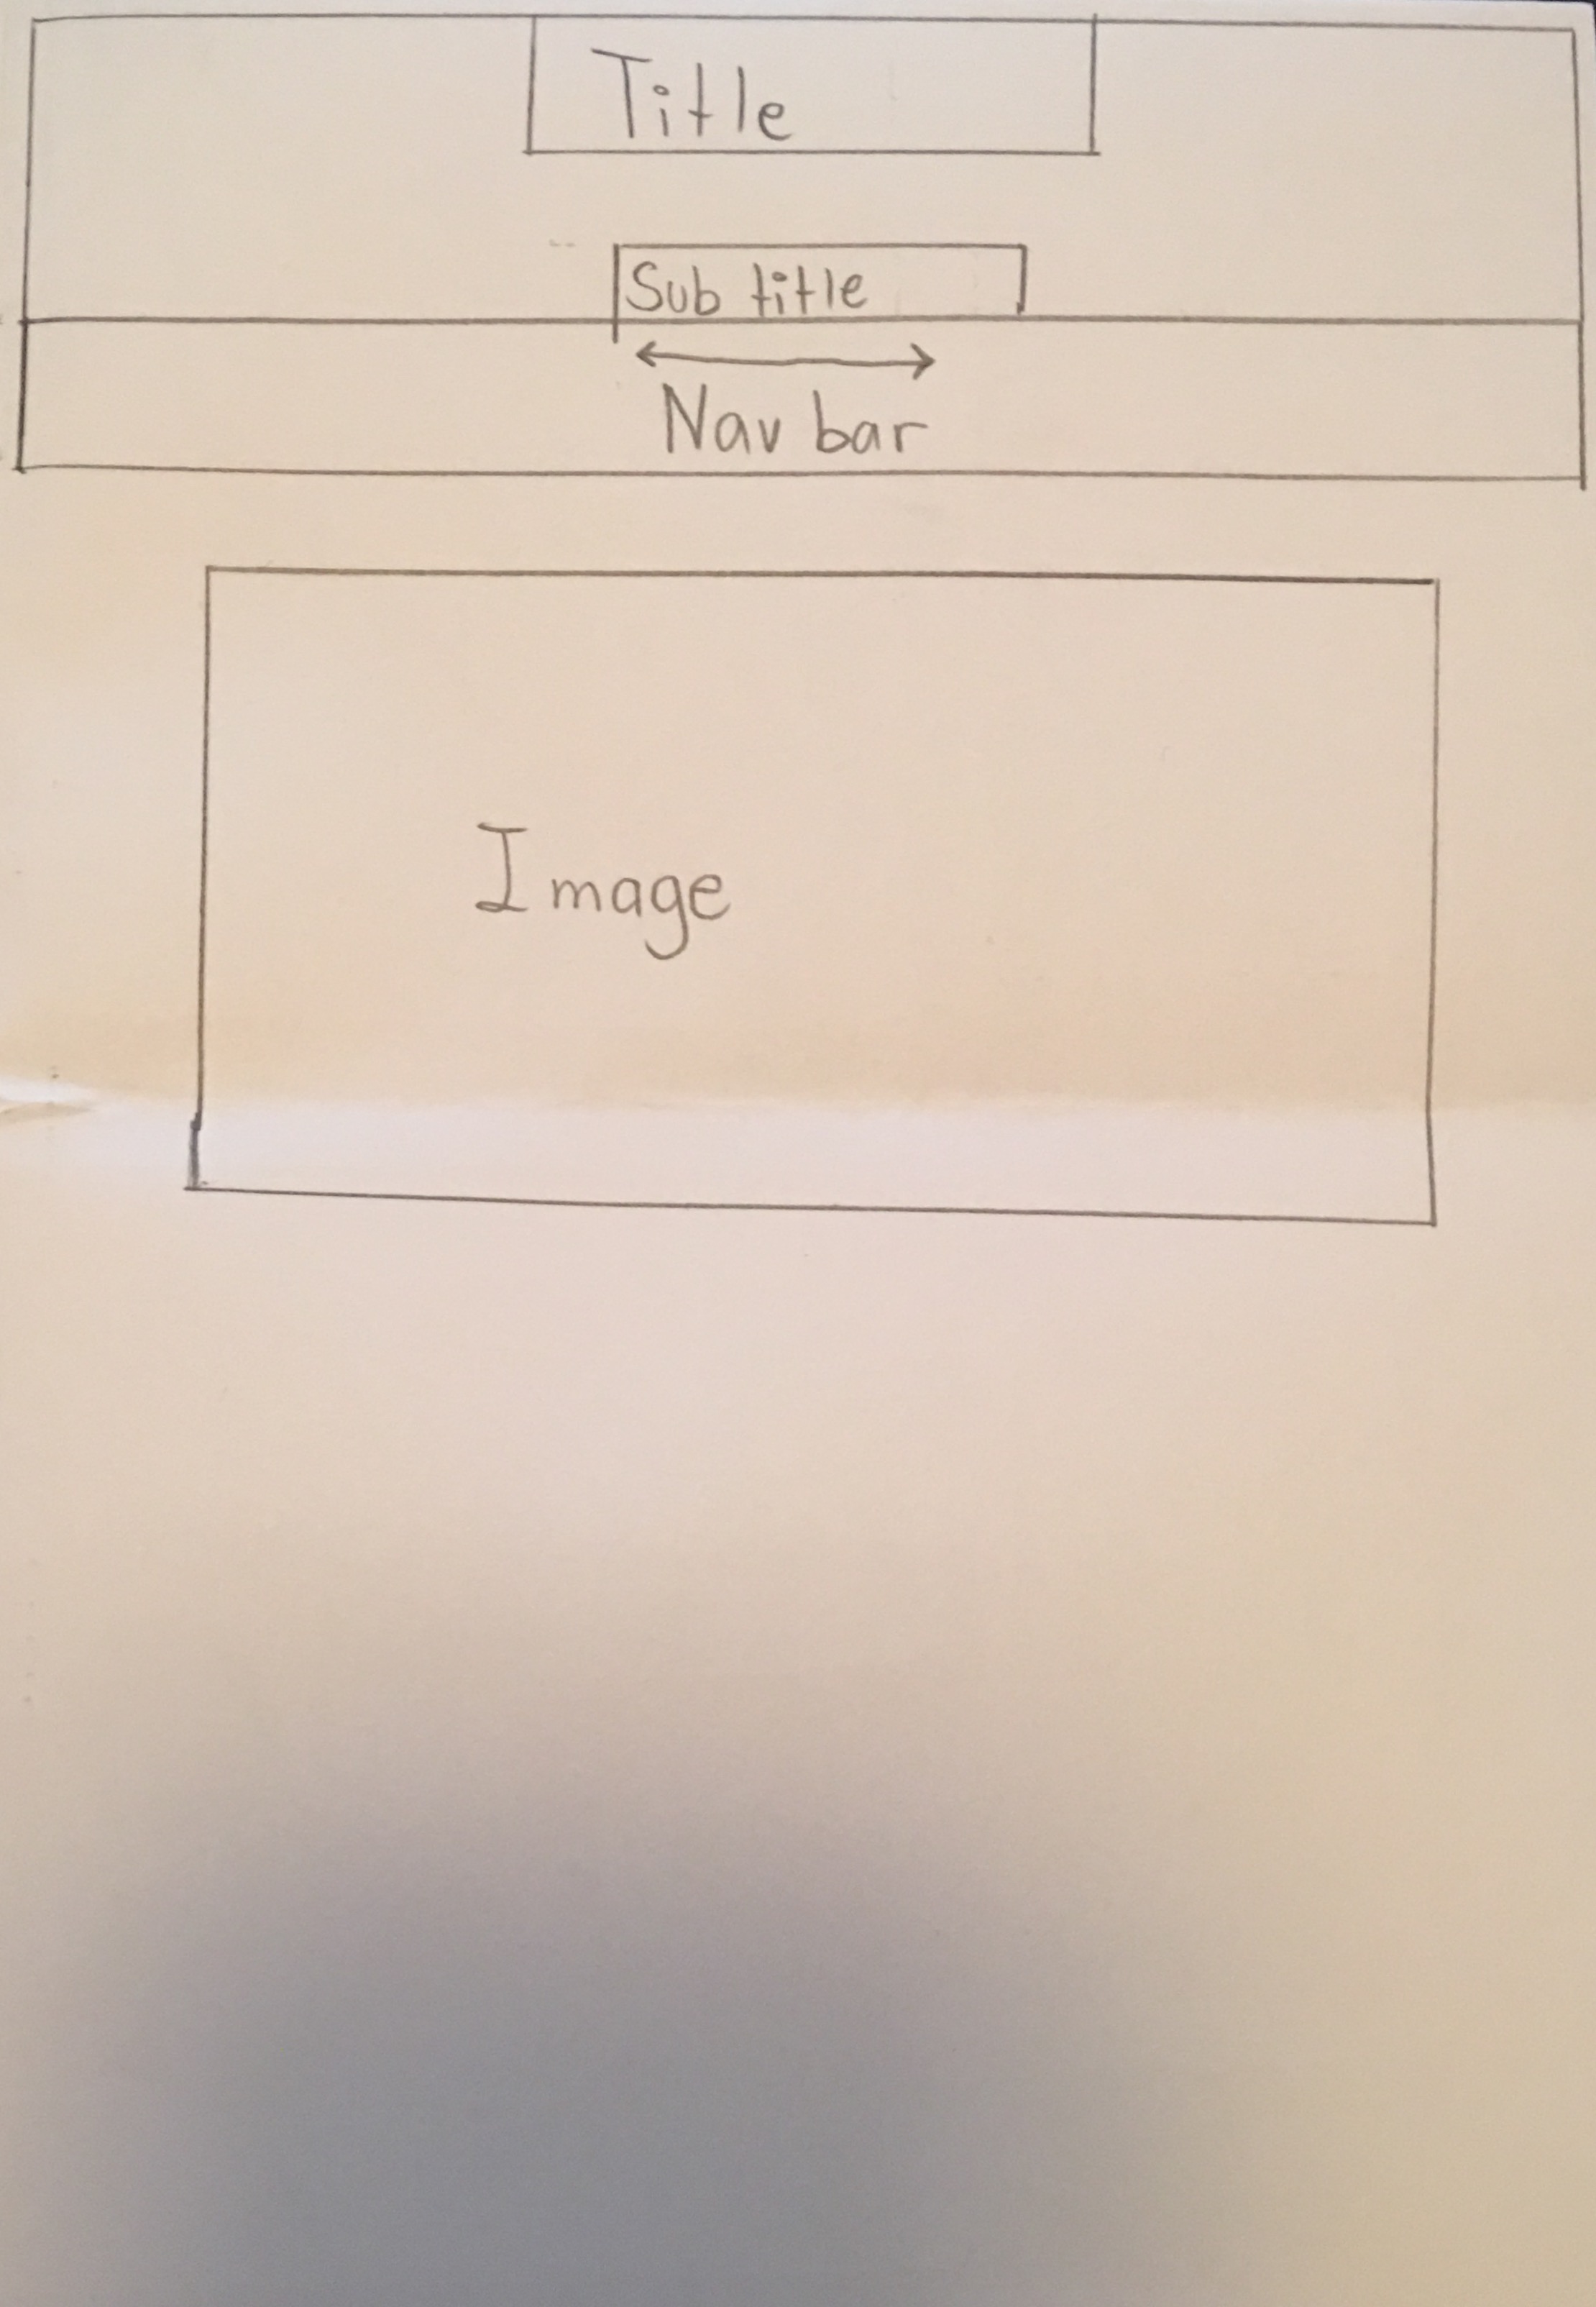 Title
Sub title
Nav bar
Image